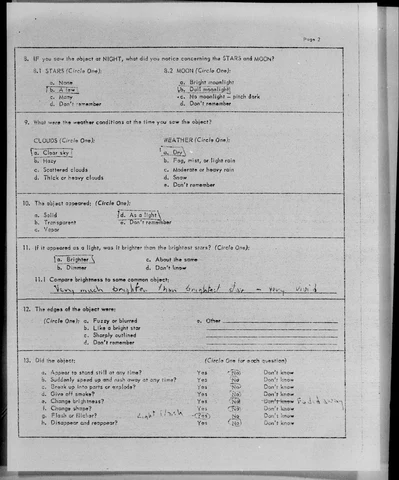 Page 2
8. IF you saw the object at NIGHT, what did you notice concerning the STARS and MOON?
8.1 STARS (Circle One): 8.2 MOON (Circle One):
a. None a. Bright moonlight
b. A few b. Dull moonlight
c. Many c. No moonlight — pitch dark
d. Don't remember d. Don't remember
9. What were the weather conditions at the time you saw the object?
CLOUDS (Circle One): WEATHER (Circle One):
a. Clear sky a. Dry
b. Hazy b. Fog, mist, or light rain
c. Scattered clouds c. Moderate or heavy rain
d. Thick or heavy clouds d. Snow
e. Don't remember
10. The object appeared: (Circle One):
a. Solid d. As a light
b. Transparent e. Don't remember
c. Vapor
11. If it appeared as a light, was it brighter than the brightest stars? (Circle One):
a. Brighter c. About the same
b. Dimmer d. Don't know
11.1 Compare brightness to some common object:
Very much brighter than brightest star - very vivid
12. The edges of the object were:
(Circle One): a. Fuzzy or blurred e. Other
b. Like a bright star
c. Sharply outlined
d. Don't remember
13. Did the object: (Circle One for each question)
a. Appear to stand still at any time? Yes No Don't know
b. Suddenly speed up and rush away at any time? Yes No Don't know
c. Break up into parts or explode? Yes No Don't know
d. Give off smoke? Yes No Don't know
e. Change brightness? Yes No Don't know
f. Change shape? Yes No Don't know
g. Flash or flicker? Light flash Yes No Don't know
h. Disappear and reappear? Yes No Don't know